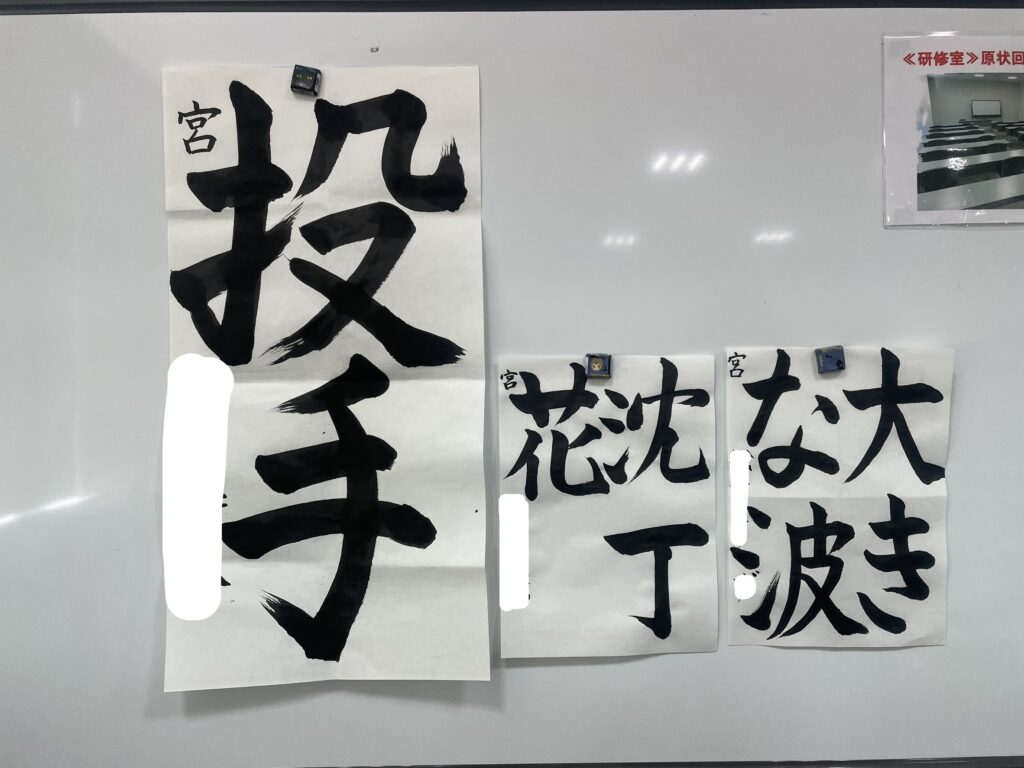 投手
宮
沈丁
花
宮
大き
な波
宮
≪研修室≫原状回